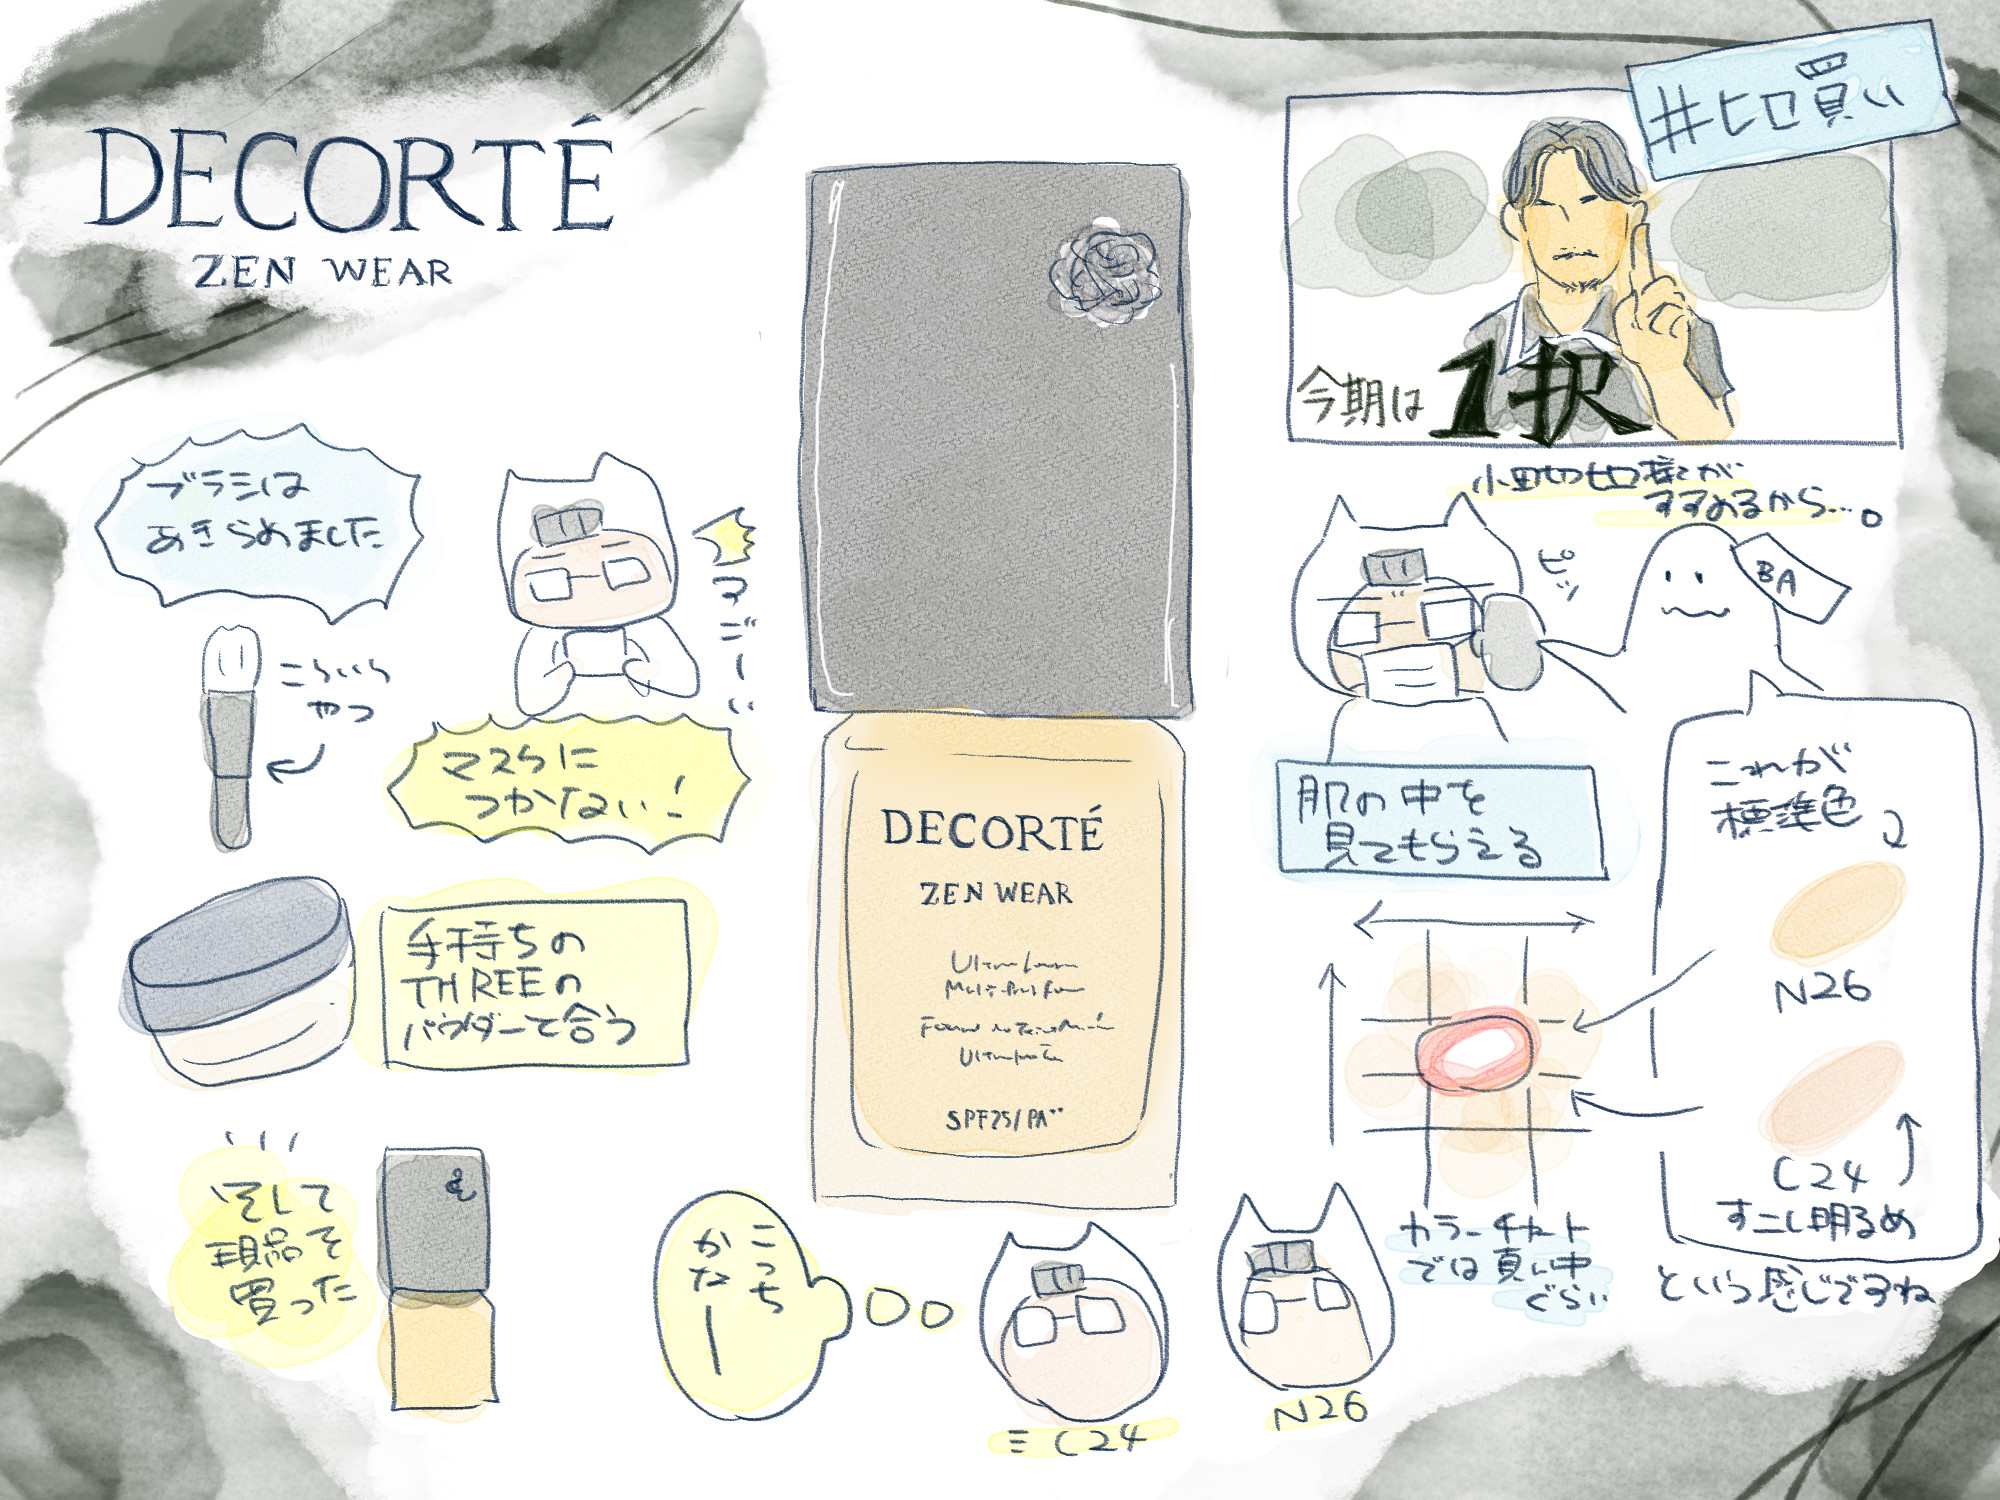 DECORTÉ
ZEN WEAR
#ヒロ買い
今期は1択
小野切ヒロ様が
すすめるから…。
ピッ
BA
肌の中を
見てもらえる
これが
標準色
N26
C24
すこし明るめ
という感じですね
カラーチャート
では真ん中
ぐらい
N26
C24
こっち
かなー
DECORTÉ
ZEN WEAR
SPF25/PA++
ブラシは
あきらめました
こういう
やつ
マジーい
マスクに
つかない!
手持ちの
THREEの
パウダーで合う
そして
現品を
買った